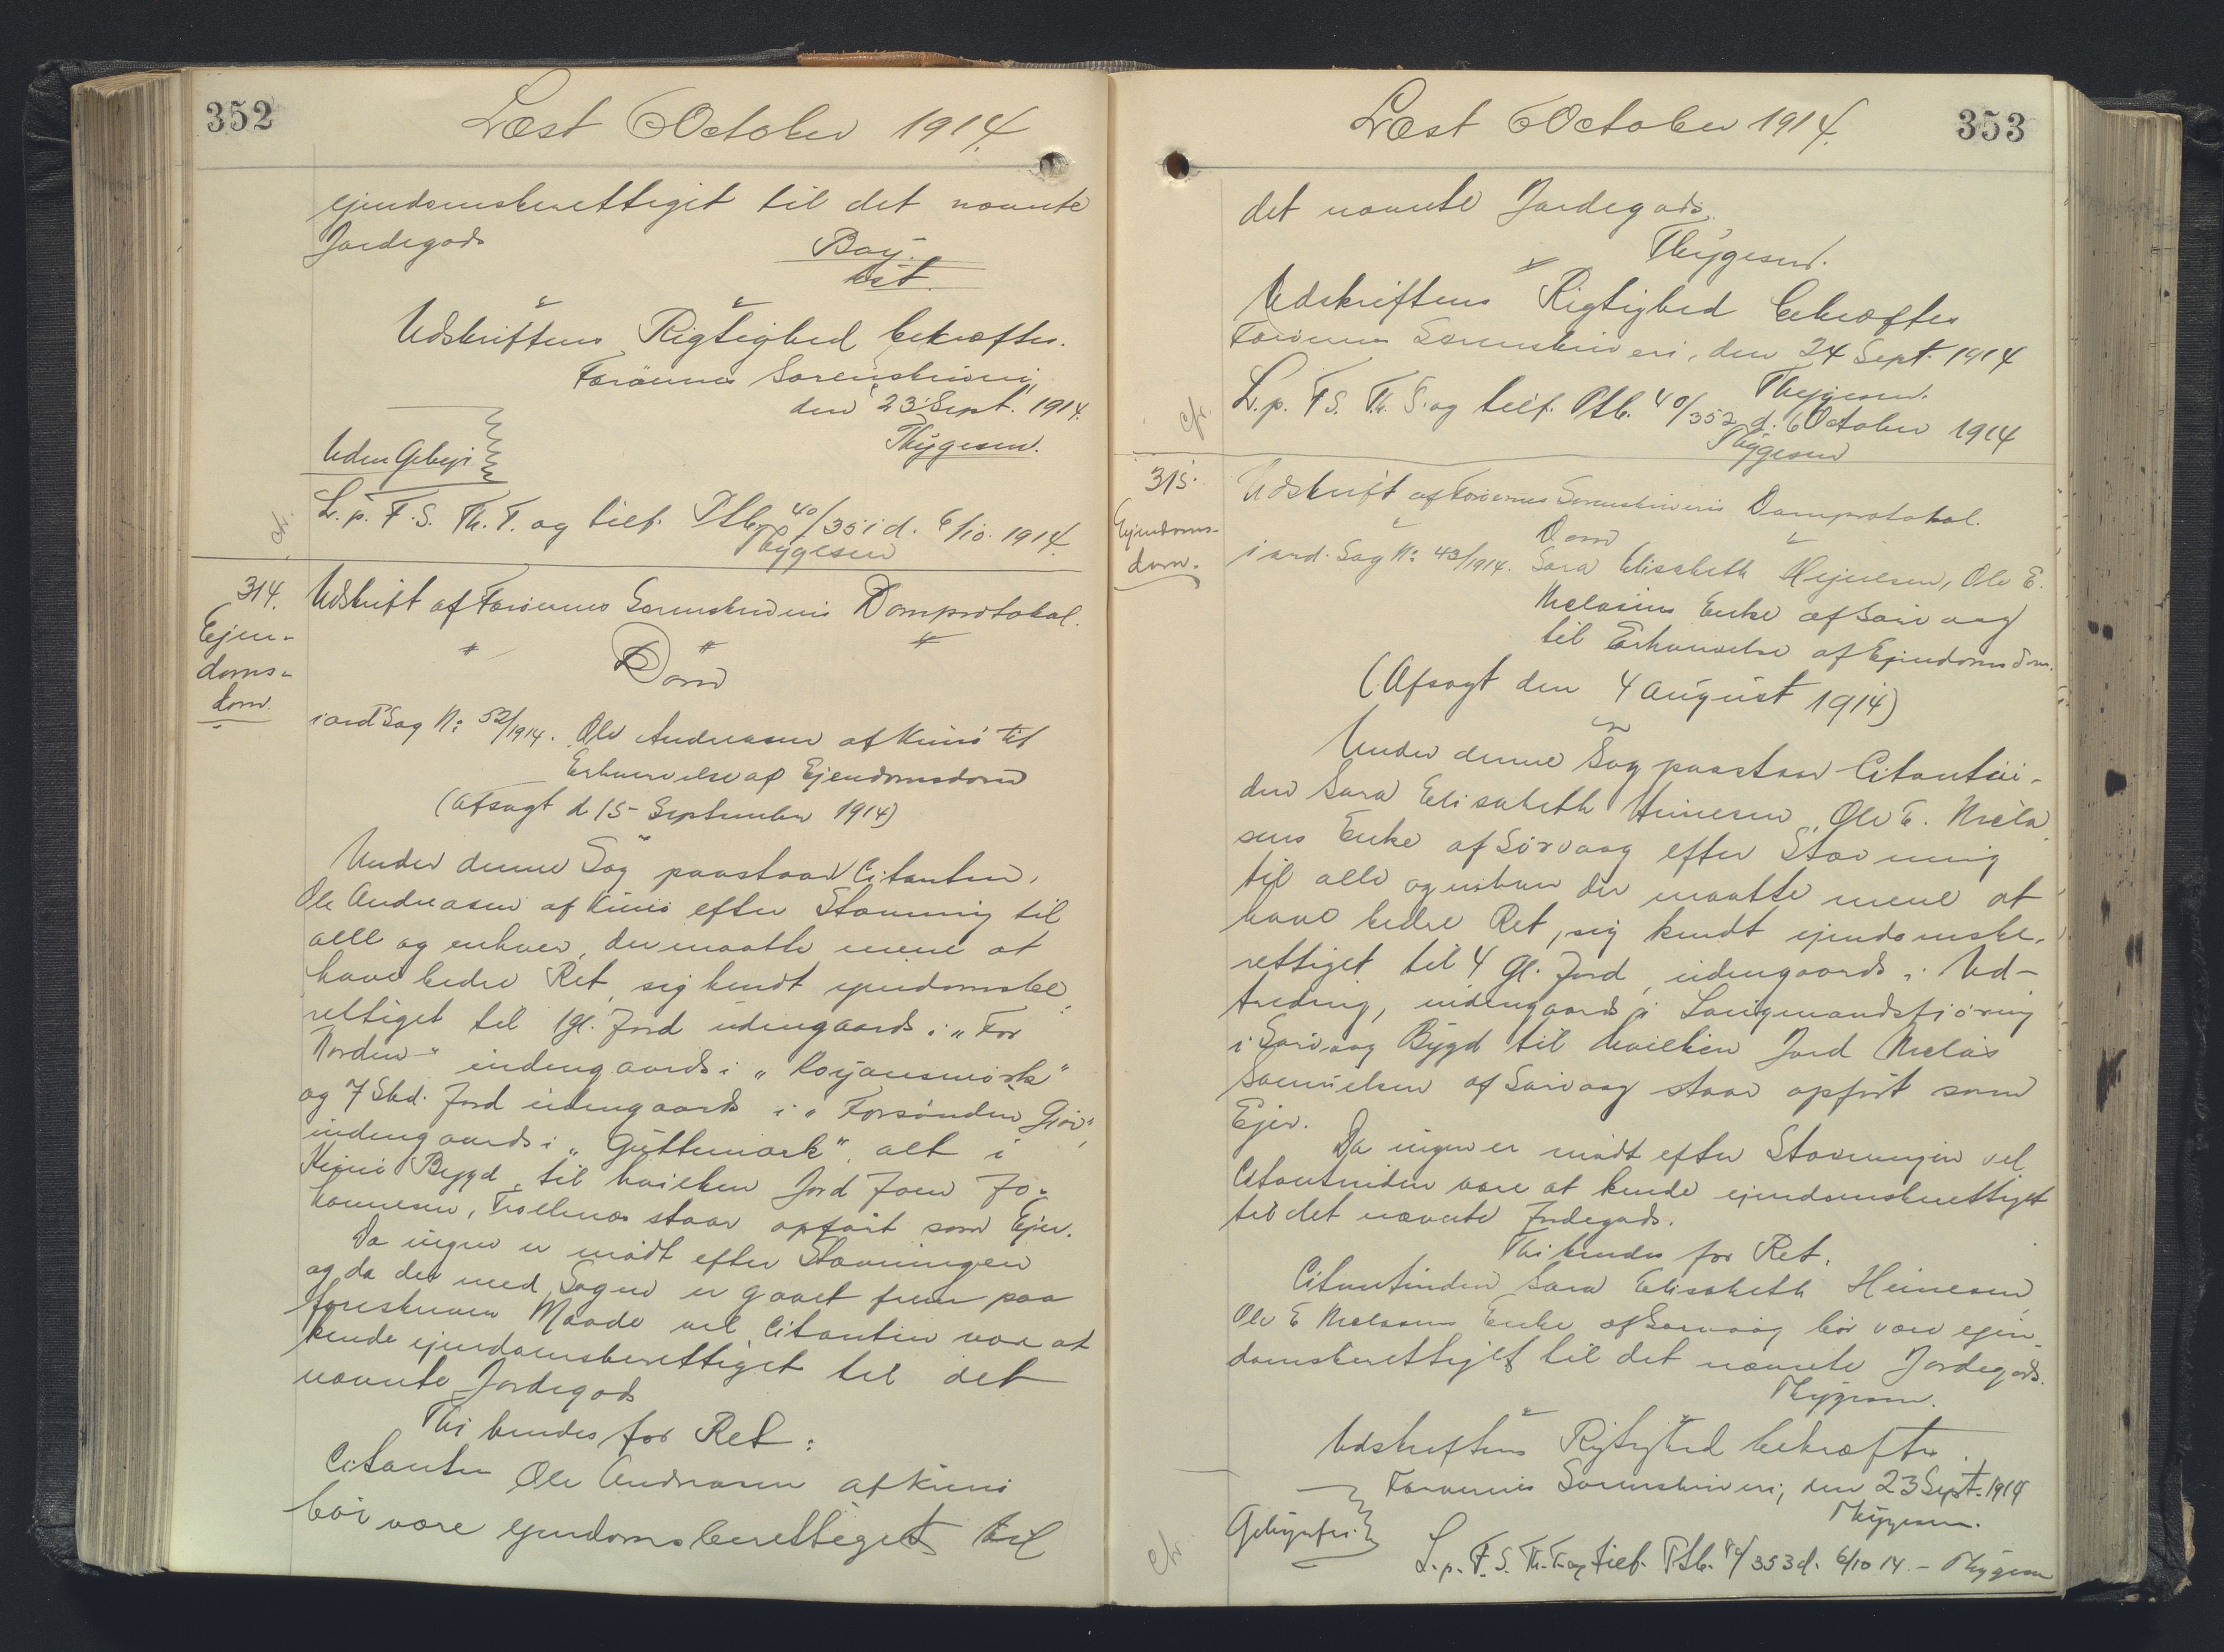 352
Læst 6 October 1914.
ejendomsberettiget til det nævnte
Jordegods
Bay.
kst.
Udskriftens Rigtighed bekræftes.
Færøernes Sorenskriveri,
den 23 Sept. 1914.
Thygesen.
Uden Gebyr
L. p. F. S. Th. T. og tilf. Ptb. 40/351 d. 6/10. 1914.
Thygesen
cfr.
314.
Ejen-
doms-
dom.
Udskrift af Færøernes Sorenskriveris Domprotokol.
Dom
i ord Sag No 52/1914. Ole Andreasen af Kunø til
Erhvervelse af Ejendomsdom
(Afsagt d 15 September 1914)
Under denne Sag paastaar Citanten,
Ole Andreasen af Kunø efter Stævning til
alle og enhver, der maatte mene at
have bedre Ret, sig kendt ejendomsbe-
rettiget til 1 gl. Jord udengaards i "For
Norden" indengaards i
og 7 Skd. Jord udengaards i "
indengaards i alt i
Kunø Bygd, til hvilken Jord Joen Jo-
hannesen, Trøllenæs staar opført som Ejer.
Da ingen er mødt efter Stævningen
og da der med Sagen er gaaet frem paa
foreskreven Maade vil Citanten være at
kende ejendomsberettiget til det
nævnte Jordegods
Thi kendes for Ret:
Citanten Ole Andreasen af Kunø
bør være ejendomsberettiget til
Læst 6 October 1914.
353
det nævnte Jordegods.
Thygesen.
Udskriftens Rigtighed bekræftes
Færøernes Sorenskriveri, den 24 Sept. 1914
Thygesen.
cfr.
L. p. F S. Th. S. og tilf. Ptb. 40/352 d. 6 October 1914
Thygesen
315.
Ejendoms-
dom.
Udskrift af Færøernes Sorenskriveris Domprotokol.
Dom
i ord. Sag No 43/1914. Sara Elisabeth Hejnesen, Ole E.
Niclasens Enke af Sørvaag
til Erhvervelse af Ejendomsdom.
(Afsagt den 4 August 1914)
Under denne Sag paastaar Citantin-
den Sara Elisabeth Heinesen, Ole E. Nicla-
sens Enke af Sørvaag efter Stævning
til alle og enhver der maatte mene at
have bedre Ret, sig kendt ejendomsbe-
rettiget til 4 Gl. Jord, udengaards i Ud-
trading, indengaards i Laugmandsfjøring
i Sørvaag Bygd til hvilken Jord Niclas
Samuelsen af Sørvaag staar opført som
Ejer.
Da ingen er mødt efter Stævningen vil
Citantinden være at kende ejendomsberettiget
til det nævnte Jordegods.
Thi kendes for Ret.
Citantinden Sara Elisabeth Heinesen,
Ole E Niclasens Enke af Sørvaag bør være ejen-
domsberettiget til det nævnte Jordegods.
Thygesen.
Udskriftens Rigtighed bekræftes.
Færøernes Sorenskriveri, den 23 Sept. 1914
Thygesen.
Gebyrfri.
cfr.
L. p. F. S. Th. T. og tilf. Ptb. 40/353 d. 6/10 14. - Thygesen